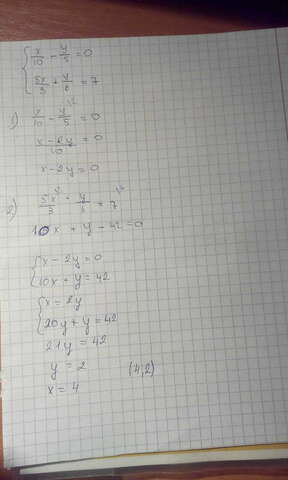 { x/10 - y/5 = 0
5x/3 + y/6 = 7
1) x/10 - y/5 = 0
x - 2y / 10 = 0
x - 2y = 0
2) 5x/3 + y/6 = 7
10x + y - 42 = 0
{ x - 2y = 0
10x + y = 42
{ x = 2y
20y + y = 42
21y = 42
y = 2 (4,2)
x = 4